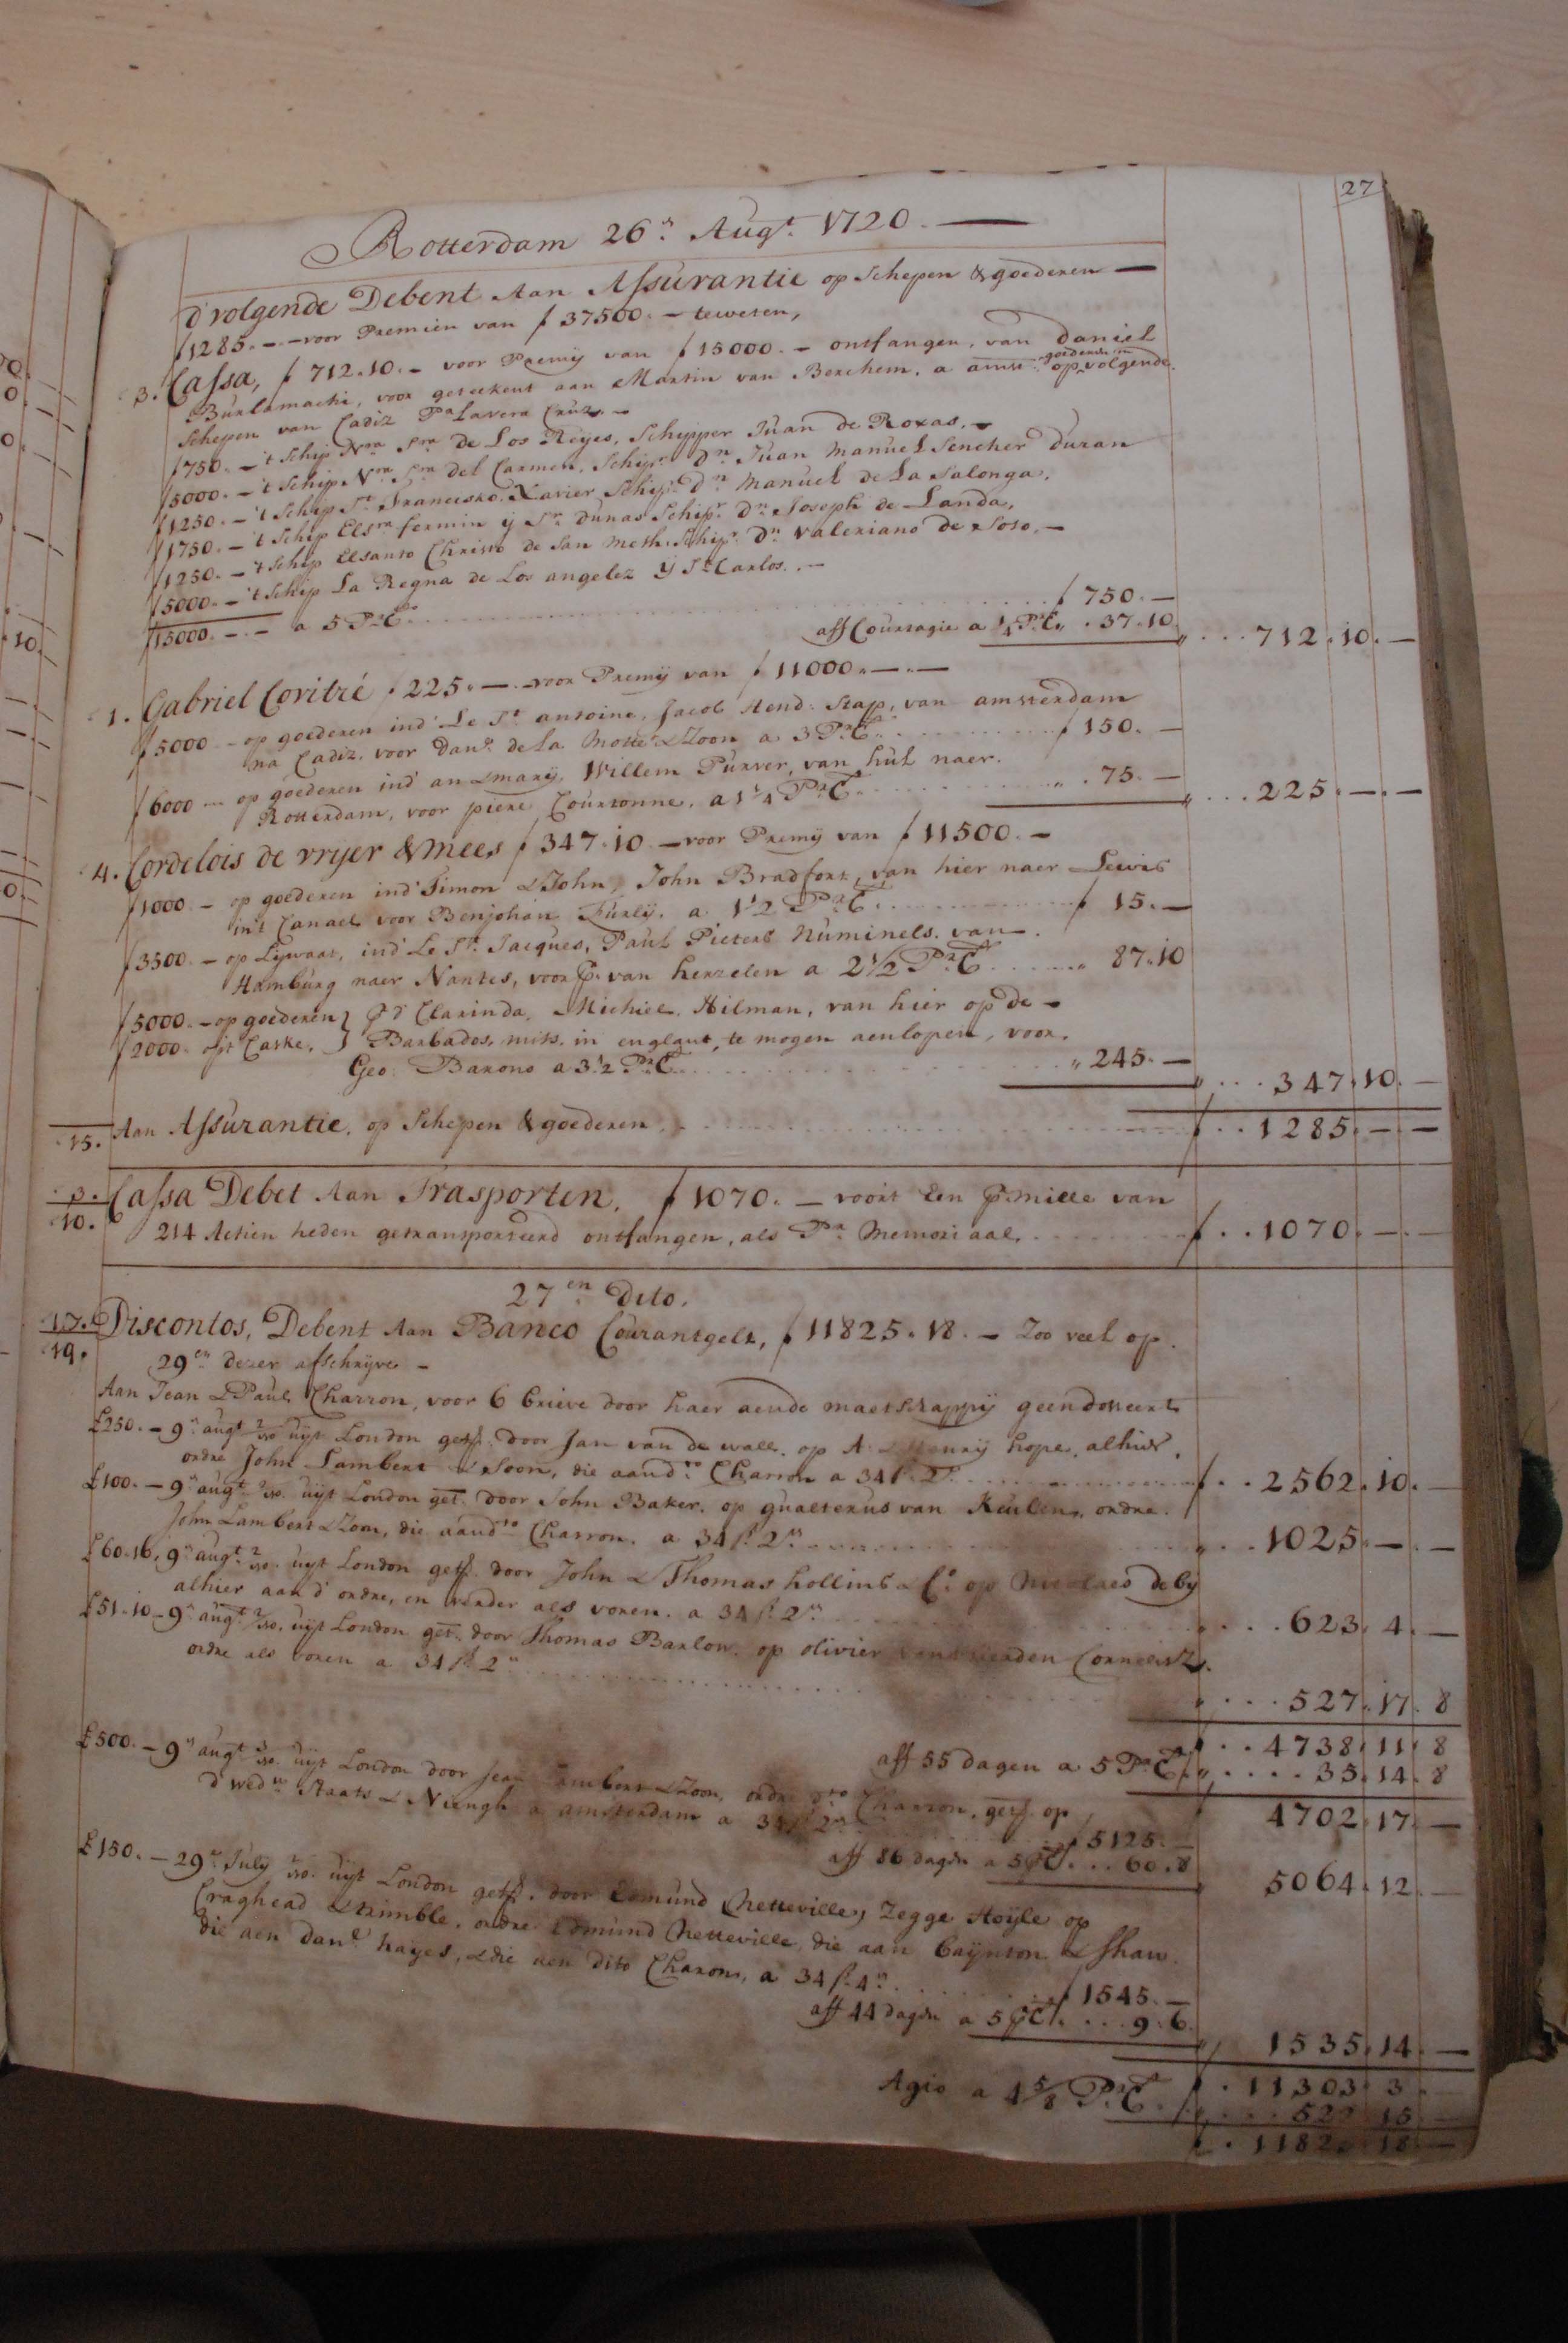 27
Rotterdam 26.n Augt. 1720. —
d'volgende Debent Aan Assurantie op Schepen & goederen —
ƒ1285.-.- voor Premien van ƒ 37500.- tewesen,
3. Cassa, ƒ 712.10.- voor Premij van ƒ 15000.- ontfangen, van Daniel
Burlamachi, voor geteekent aan Martin van Berchem, a amst. op goederen in volgende
Schepen van Cadiz Pr. Lavera Cruz.-
ƒ750.- 't Schip Nra. Sra. de Los Reijes, Schipper Juan de Roxas.-
ƒ5000.- 't Schip Nra. Sra. del Carmen, Schipr. Dn. Juan Manuel Sencher Duran
ƒ1250.- 't Schip St. Francisko Xavier Schipr. Dn. Manuel de La Salonga,
ƒ1750.- 't Schip Elsra. fermin ij Sn. Dunas Schipr. Dn. Joseph de Landa,
ƒ1250.- 't Schip Elsanto Christo de San Meth. Schipr. Dn. Valeriano de Soto.-
ƒ5000.- 't Schip La Regna de Los angelez ij Sn. Carlos.-
ƒ15000.-.- a 5 Pr. Ct. ƒ 750.-
aff Courtagie a ¼ Pr. Ct. „ 37.10. „ 712.10.-
1. Gabriel Coritré ƒ 225.-.- voor Premij van ƒ 11000.-.-
ƒ5000.- op goederen ind' Le St. antoine, Jacob Hend. Stap, van amsterdam
na Cadiz, voor Danl. de la Motte & Zoon a 3 Pr. Ct. ƒ 150.-
ƒ6000.- op goederen ind' an & marij, Willem Purver, van hul naer.
Rotterdam, voor piere Courtonne, a 1¼ Pr. Ct. „ 75.- „ 225.-.-
4. Cordelois de vrijer & Mees ƒ 347.10.- voor Premij van ƒ 11500.-
ƒ1000.- op goederen ind' Simon & John, John Bradfort, van hier naer Lewis
in't Canael voor Benjohan Furlij. a 1½ Pr. Ct. ƒ 15.-
ƒ3500.- op Lijwaat, ind' Le St. Jacques, Paul Pieters Numinels. van
Hamburg naer Nantes, voor P. van herzelen a 2½ Pr. Ct. „ 87.10
ƒ5000.- op goederen } Pr. d' Clarinda, Michiel Hilman, van hier op de -
ƒ2000. opt Caske, } Barbados, mits. in englant, te mogen aenlopen, voor.
Geo. Barons a 3½ Pr. Ct. „ 245.- „ 347.10.-
15. Aan Assurantie, op Schepen & goederen ƒ 1285.-.-
3. Cassa Debet Aan Trasporten, ƒ 1070.- voort Een P. mille van
10. 214 Actien heden getransporteerd ontfangen, als Pr. Memoriaal, ƒ 1070.-.-
27en. Dito.
17. Discontos, Debent Aan Banco Courantgelt, ƒ 11825.18.- Zoo veel op.
19. 29en. dezer afschrijve -
Aan Jean & Paul Charron, voor 6 brieve door haer aende maetschappij geendosseert
£250.- 9n. augt. 2/uso uijt London getr. door Jan van de wall. op A. & Henrij hope, alhier.
ordre John Lambert & Soon, die aand. to Charron a 34 ß. 2.n ƒ 2562.10.-
£100.- 9n. augt. 2/uso. uijt London get. door John Baker, op gualterus van Keulen, ordre.
John Lambert & Zoon, die aand. to Charron. a 34 ß. 2.n „ 1025.-.-
£60.16. 9n. augt. 2/uso. uijt London getr. door John & Thomas hollins & Co. op Nicolaes deby
alhier aan d' ordre, en verder als voren. a 34 ß. 2.n „ 623.4.-
£51.10.- 9n. augt. 2/uso. uijt London get. door Thomas Barlow. op olivier Cornelisz.
ordre als voren a 34 ß. 2.n „ 527.17.8
ƒ 4738.11.8
aff 55 dagen a 5 Pr. Ct. „ 35.14.8
4702.17.-
£500.- 9n. augt. 3/uso. uijt London door Jean Lambert & Zoon, ordre dto. Charron, getr. op
d' wedw. Staats & Nuengh a amsterdam a 34 ß. 2.n ƒ 5125.-
aff 86 dagen a 5 P Ct. 60.8 5064.12.-
£150.- 29n. July 2/uso. uijt London getr. door Edmund Chetteville, Zegge Hoyle op
Craghead & Kimble, ordre Edmund Netteville, die aan baijnton & Shaw.
die aen Danl. hayes, & die aen dito Charons, a 34 ß. 4.n ƒ 1545.-
aff 44 dagen a 5 P Ct. 9.6. „ 1535.14.-
ƒ 11303.3
Agio a 4⅝ Pr. Ct. 522.15
18